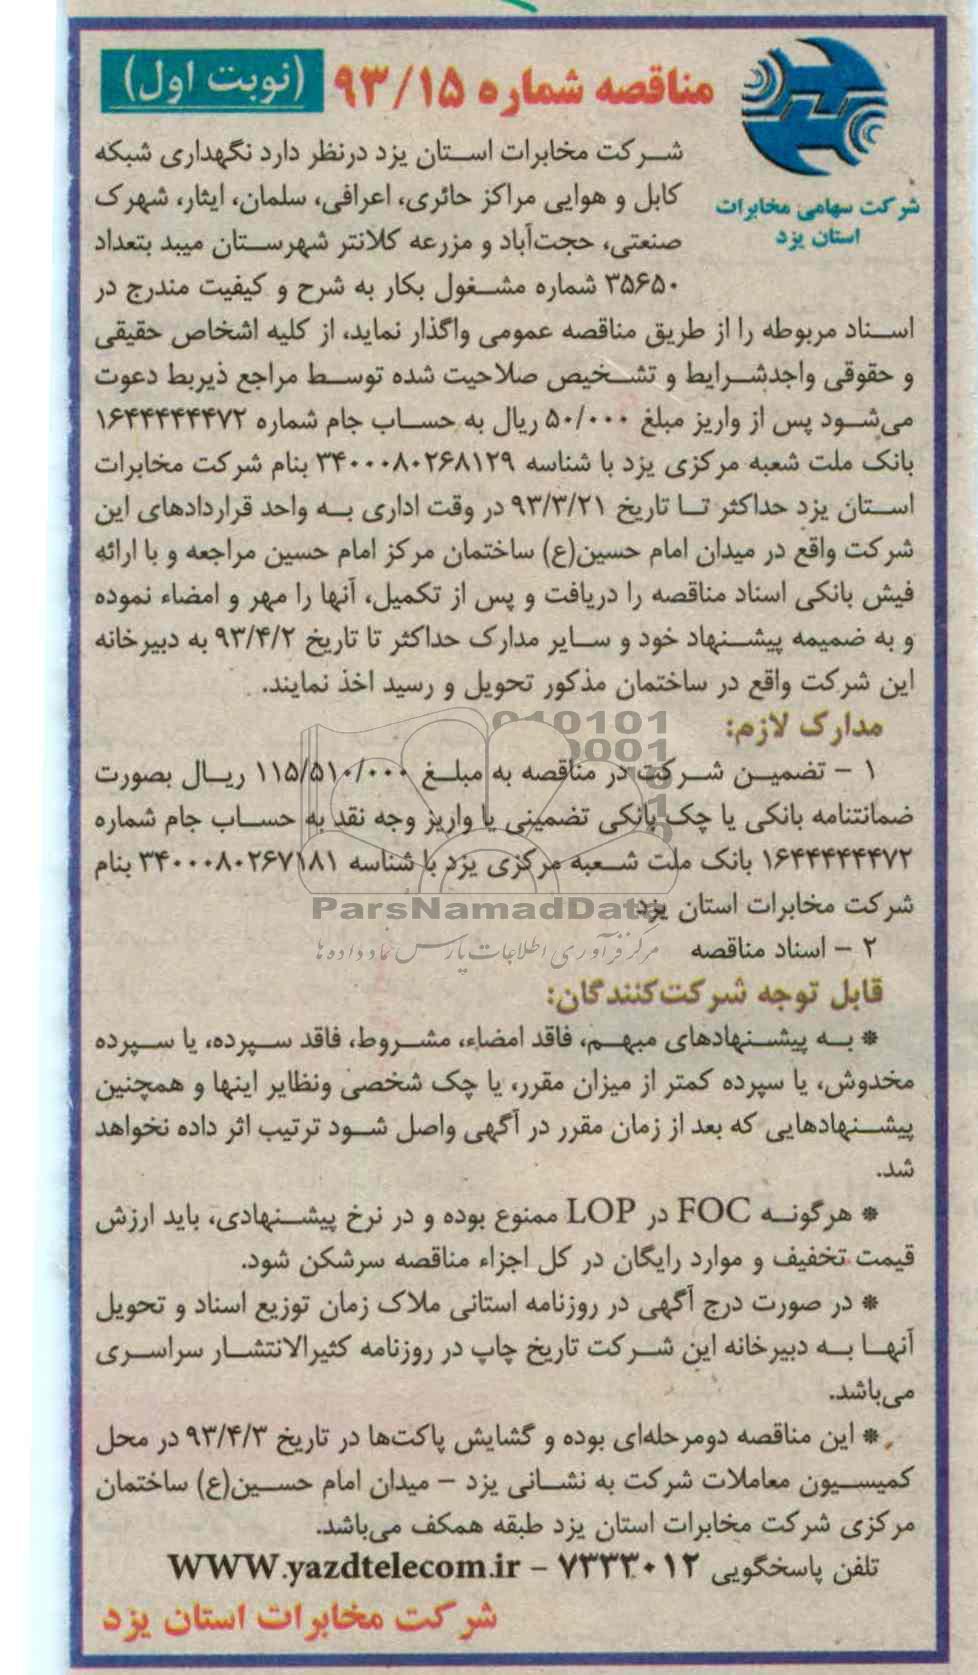 مناقصه شماره ۹۳/۱۵ (نوبت اول)
شرکت سهامی مخابرات
استان یزد
شرکت مخابرات استان یزد درنظر دارد نگهداری شبکه
کابل و هوایی مراکز حائری، اعرافی، سلمان، ایثار، شهرک
صنعتی، حجت‌آباد و مزرعه کلانتر شهرستان میبد بتعداد
۳۵۶۵۰ شماره مشغول بکار به شرح و کیفیت مندرج در
اسناد مربوطه را از طریق مناقصه عمومی واگذار نماید، از کلیه اشخاص حقیقی
و حقوقی واجدشرایط و تشخیص صلاحیت شده توسط مراجع ذیربط دعوت
می‌شود پس از واریز مبلغ ۵۰/۰۰۰ ریال به حساب جام شماره ۱۶۴۴۴۴۴۴۷۲
بانک ملت شعبه مرکزی یزد با شناسه ۳۴۰۰۰۸۰۲۶۸۱۲۹ بنام شرکت مخابرات
استان یزد حداکثر تا تاریخ ۹۳/۳/۲۱ در وقت اداری به واحد قراردادهای این
شرکت واقع در میدان امام حسین(ع) ساختمان مرکز امام حسین مراجعه و با ارائه
فیش بانکی اسناد مناقصه را دریافت و پس از تکمیل، آنها را مهر و امضاء نموده
و به ضمیمه پیشنهاد خود و سایر مدارک حداکثر تا تاریخ ۹۳/۴/۲ به دبیرخانه
این شرکت واقع در ساختمان مذکور تحویل و رسید اخذ نمایند.
مدارک لازم:
۱ - تضمین شرکت در مناقصه به مبلغ ۱۱۵/۵۱۰/۰۰۰ ریال بصورت
ضمانتنامه بانکی یا چک بانکی تضمینی یا واریز وجه نقد به حساب جام شماره
۱۶۴۴۴۴۴۴۷۲ بانک ملت شعبه مرکزی یزد با شناسه ۳۴۰۰۰۸۰۲۶۷۱۸۱ بنام
شرکت مخابرات استان یزد
ParsNamadData
۲ - اسناد مناقصه
مرکز فرآوری اطلاعات پارس نماد داده ها
قابل توجه شرکت‌کنندگان:
* به پیشنهادهای مبهم، فاقد امضاء، مشروط، فاقد سپرده، یا سپرده
مخدوش، یا سپرده کمتر از میزان مقرر، یا چک شخصی ونظایر اینها و همچنین
پیشنهادهایی که بعد از زمان مقرر در آگهی واصل شود ترتیب اثر داده نخواهد
شد.
* هرگونه FOC در LOP ممنوع بوده و در نرخ پیشنهادی، باید ارزش
قیمت تخفیف و موارد رایگان در کل اجزاء مناقصه سرشکن شود.
* در صورت درج آگهی در روزنامه استانی ملاک زمان توزیع اسناد و تحویل
آنها به دبیرخانه این شرکت تاریخ چاپ در روزنامه کثیرالانتشار سراسری
می‌باشد.
* این مناقصه دومرحله‌ای بوده و گشایش پاکت‌ها در تاریخ ۹۳/۴/۳ در محل
کمیسیون معاملات شرکت به نشانی یزد - میدان امام حسین(ع) ساختمان
مرکزی شرکت مخابرات استان یزد طبقه همکف می‌باشد.
تلفن پاسخگویی ۷۳۳۳۰۱۲ - WWW.yazdtelecom.ir
شرکت مخابرات استان یزد